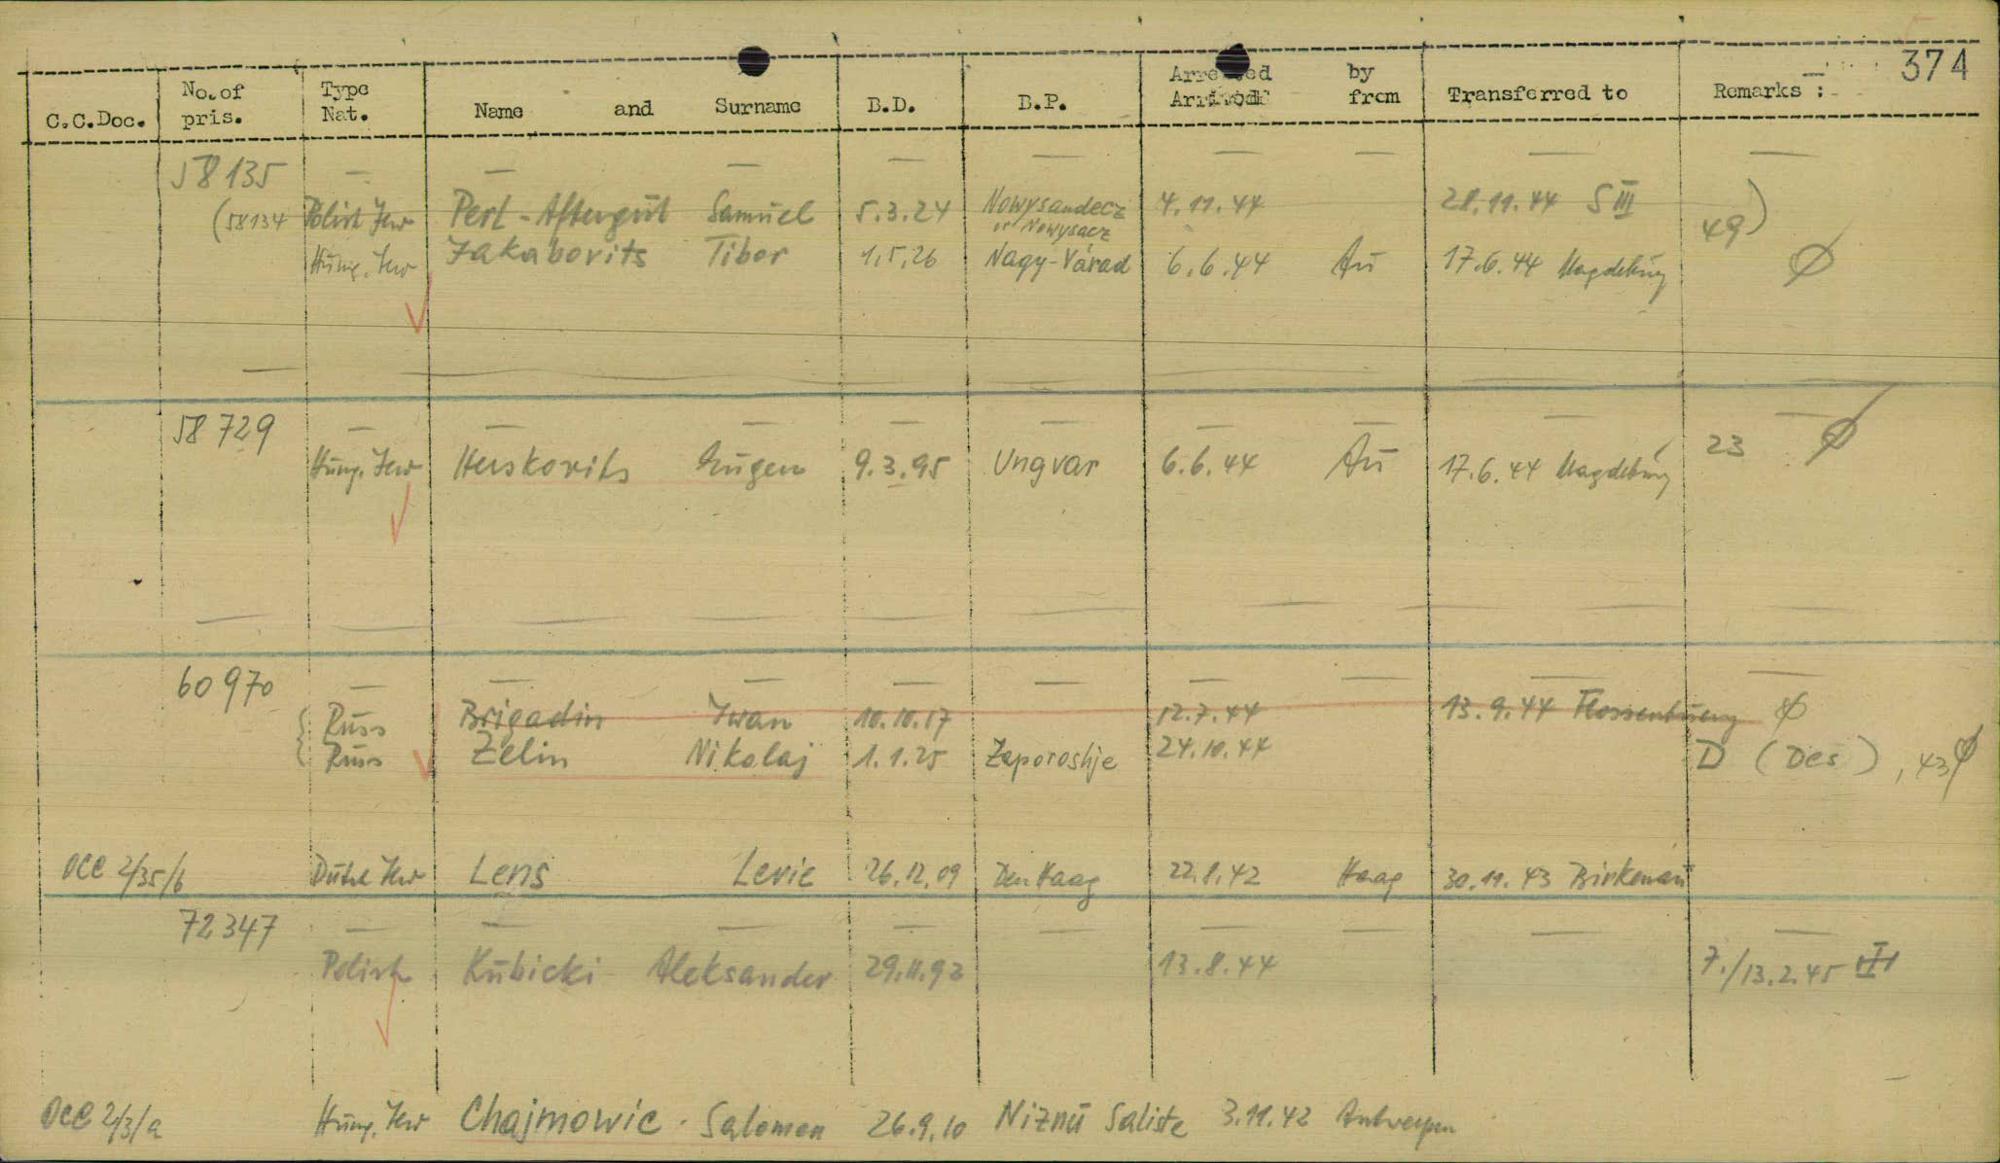 374
C.C.Doc. No. of pris. Type Nat. Name and Surname B.D. B.P. Arrested Arrived by from Transferred to Remarks :
58135 — — — — — — — — —
(58134 Polish Jew Perl-Aftergut Samuel 5.3.24 Nowysandecz or Nowysacz 4.11.44 28.11.44 S III 49)
Hung. Jew Jakabovits Tibor 1.5.26 Nagy-Várad 6.6.44 Au 17.6.44 Magdeburg Ø
58729 — — — — — — — —
Hung. Jew Herskovits Eugen 9.3.95 Ungvar 6.6.44 Au 17.6.44 Magdeburg 23 Ø
60970 — — — — — — — — —
Russ Brigadin Iwan 10.10.17 12.7.44 13.9.44 Flossenbuerg Ø
Russ Zelin Nikolaj 1.1.25 Zaporoshje 24.10.44 D (Des), 43 Ø
OCC 2/35/6 Dutch Jew Lens Levie 26.12.09 Den Haag 22.8.42 Haag 30.11.43 Birkenau
72347 — — — — — — — — —
Polish Kubicki Aleksander 29.11.92 13.8.44 7./13.2.45
OCC 2/3/a Hung. Jew Chajmowic Salomon 26.9.10 Niznü Saliste 3.11.42 Antwerpen